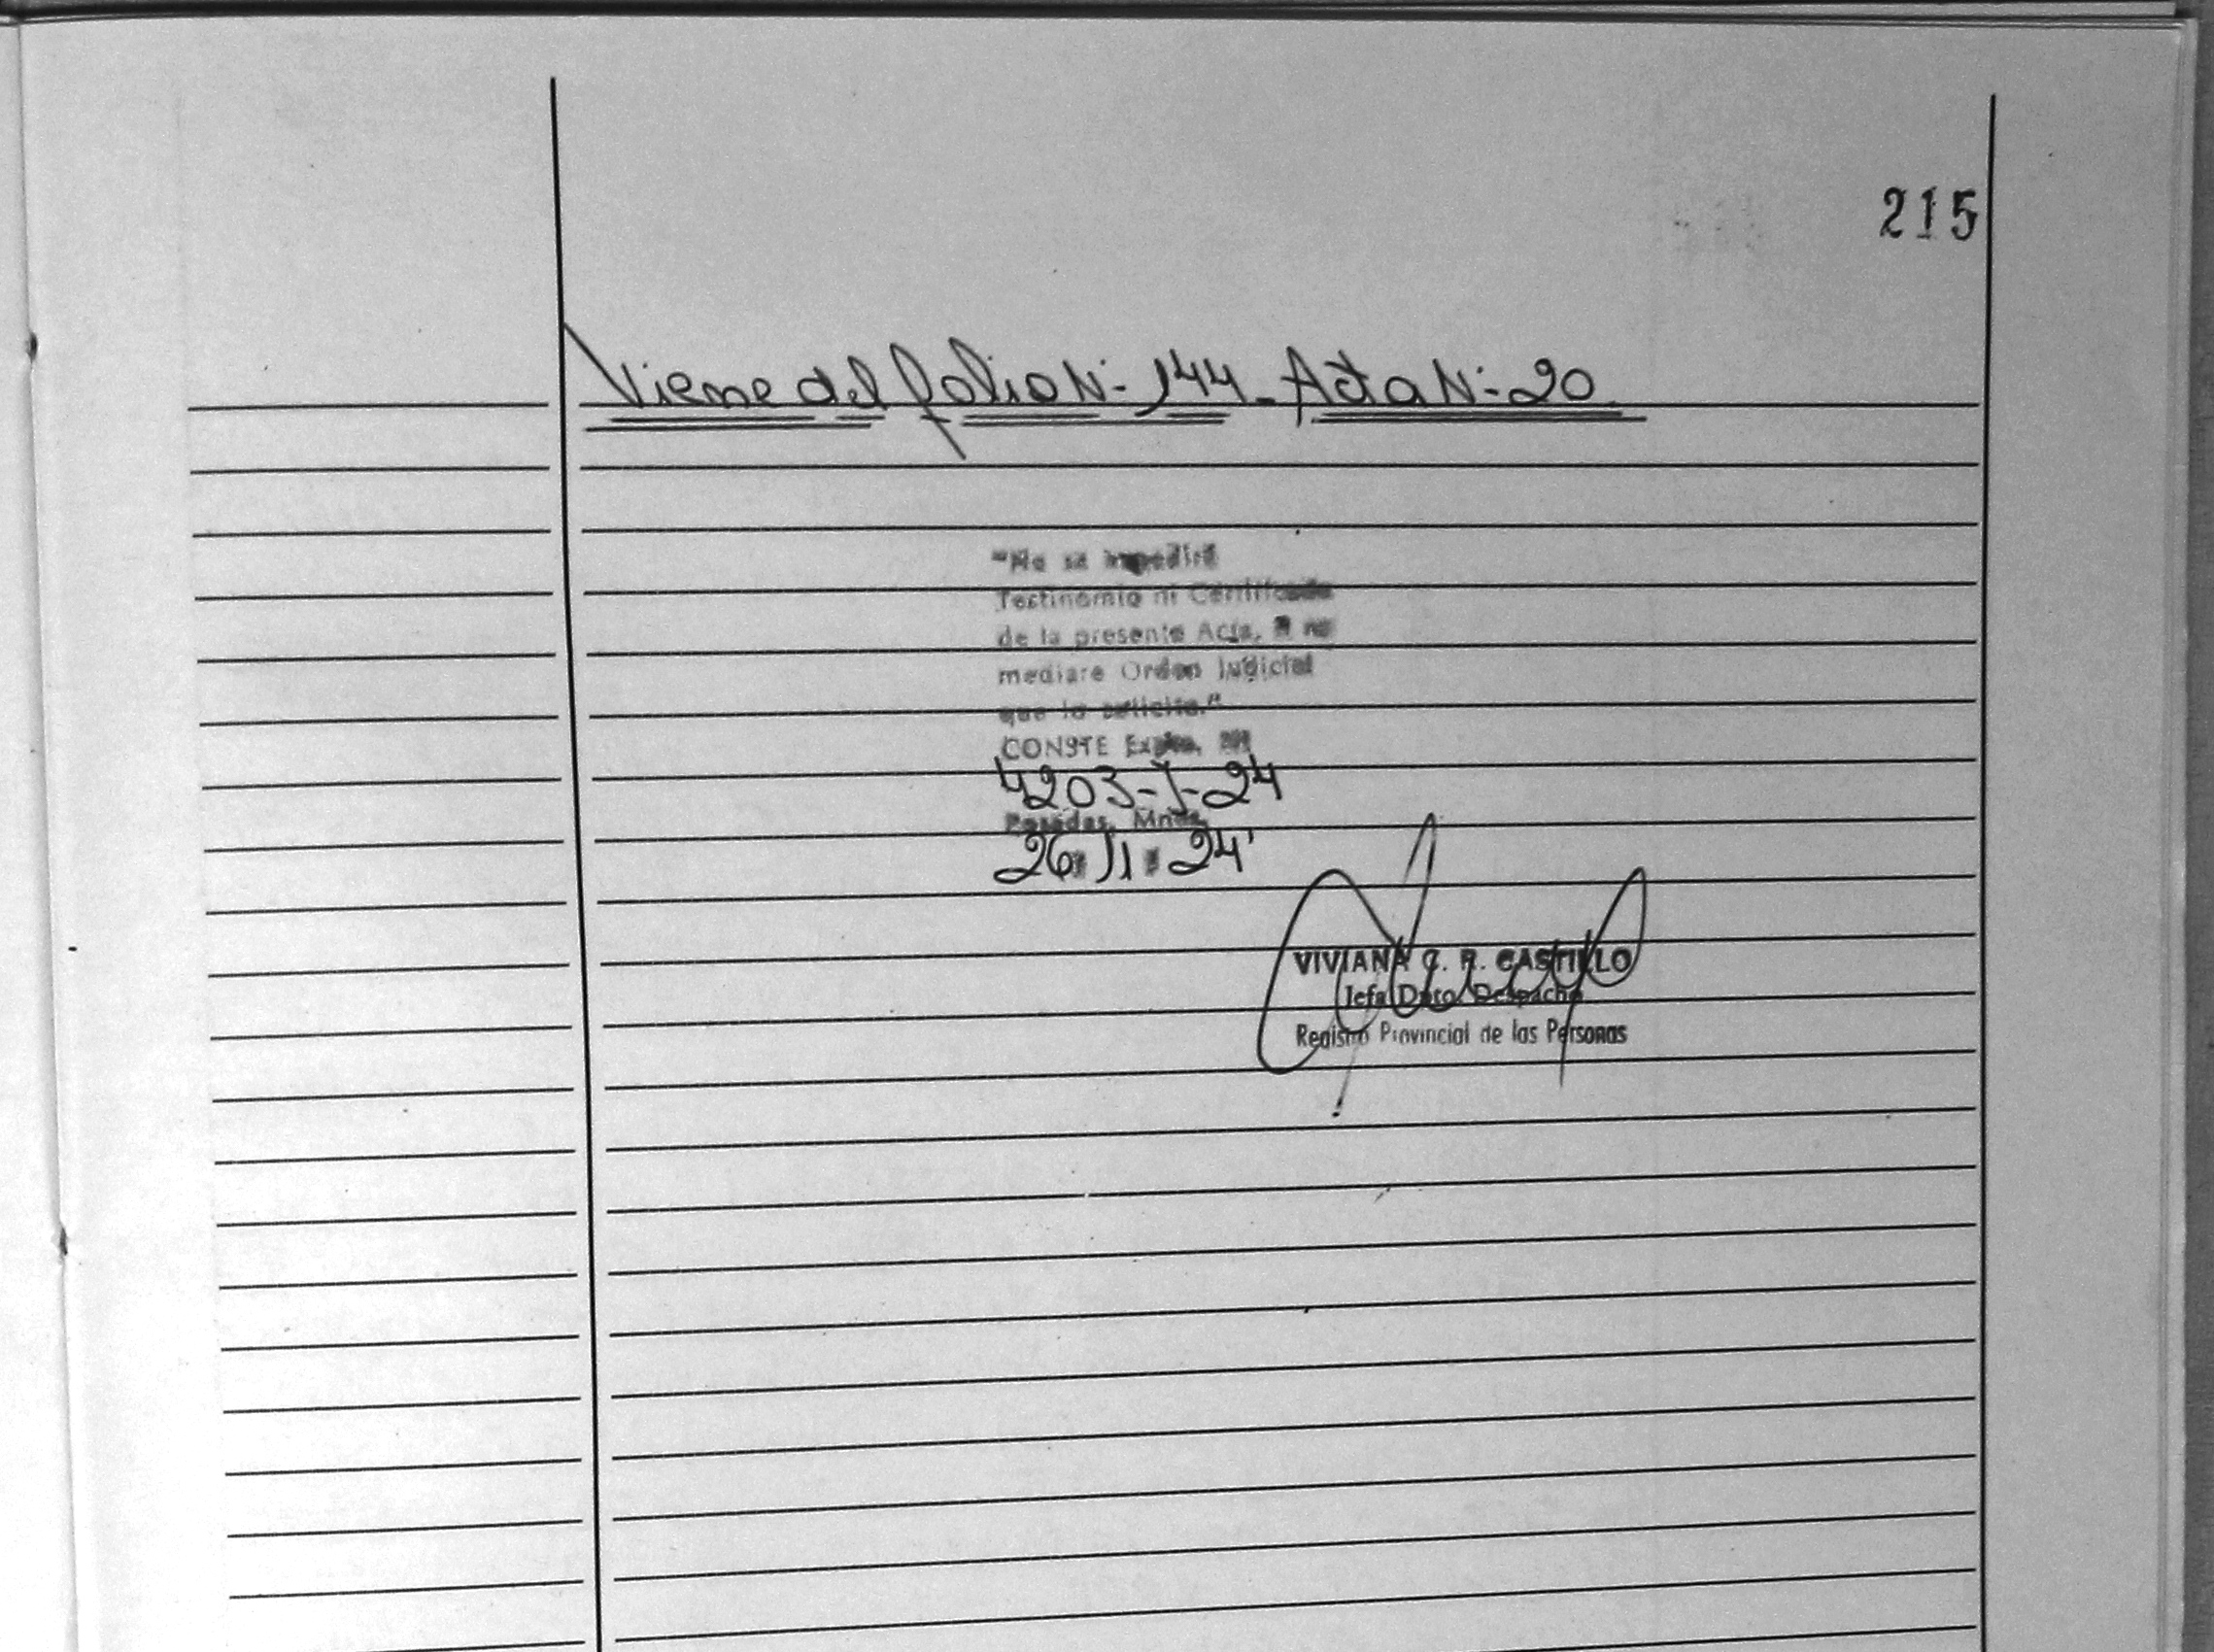 215
Viene del folio Nº 144 - Acta Nº 20
"No se
Testinomio ni Certificado
de la presente Acta, si no
mediare Orden Judicial
que lo solicite."
CONSTE Expte. Nº
4203-J-24
Posadas, Mnes.
26 11 24
VIVIANA C. R. CASTILLO
Jefa Dpto. Despacho
Registro Provincial de las Personas